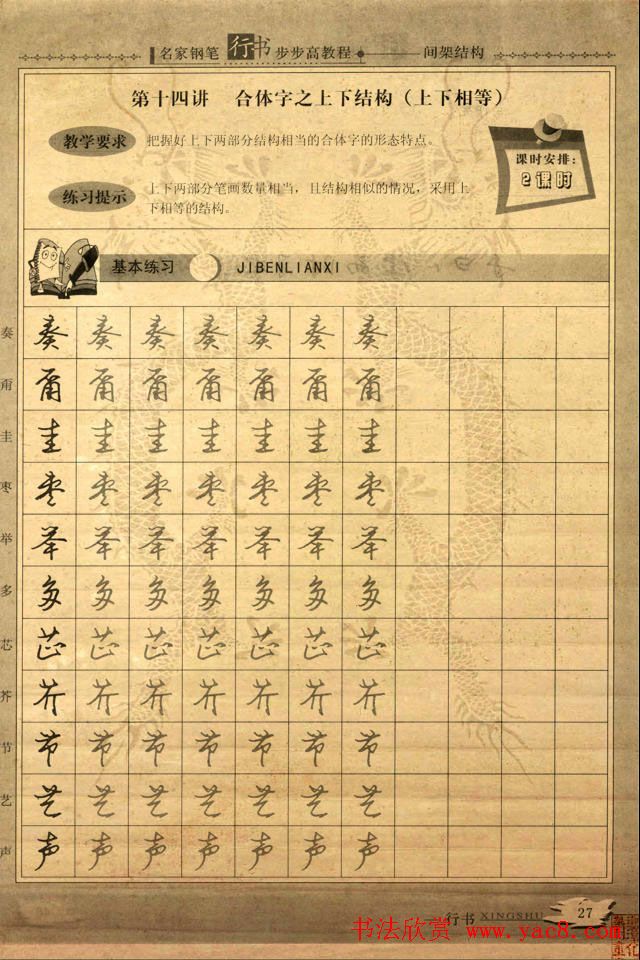 名家钢笔行书步步高教程 间架结构
第十四讲 合体字之上下结构（上下相等）
教学要求 把握好上下两部分结构相当的合体字的形态特点。
课时安排：
2课时
练习提示 上下两部分笔画数量相当，且结构相似的情况，采用上
下相等的结构。
基本练习 JIBENLIANXI
奏 奏 奏 奏 奏 奏 奏 奏
甭 甭 甭 甭 甭 甭 甭 甭
圭 圭 圭 圭 圭 圭 圭 圭
枣 枣 枣 枣 枣 枣 枣 枣
举 举 举 举 举 举 举 举
多 多 多 多 多 多 多 多
芯 芯 芯 芯 芯 芯 芯 芯
芥 芥 芥 芥 芥 芥 芥 芥
节 节 节 节 节 节 节 节
艺 艺 艺 艺 艺 艺 艺 艺
声 声 声 声 声 声 声 声
行书 XINGSHU 27
书法欣赏 www.yac8.com